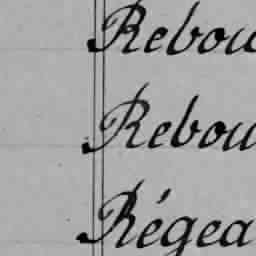 Rebou
Rebou
Régea